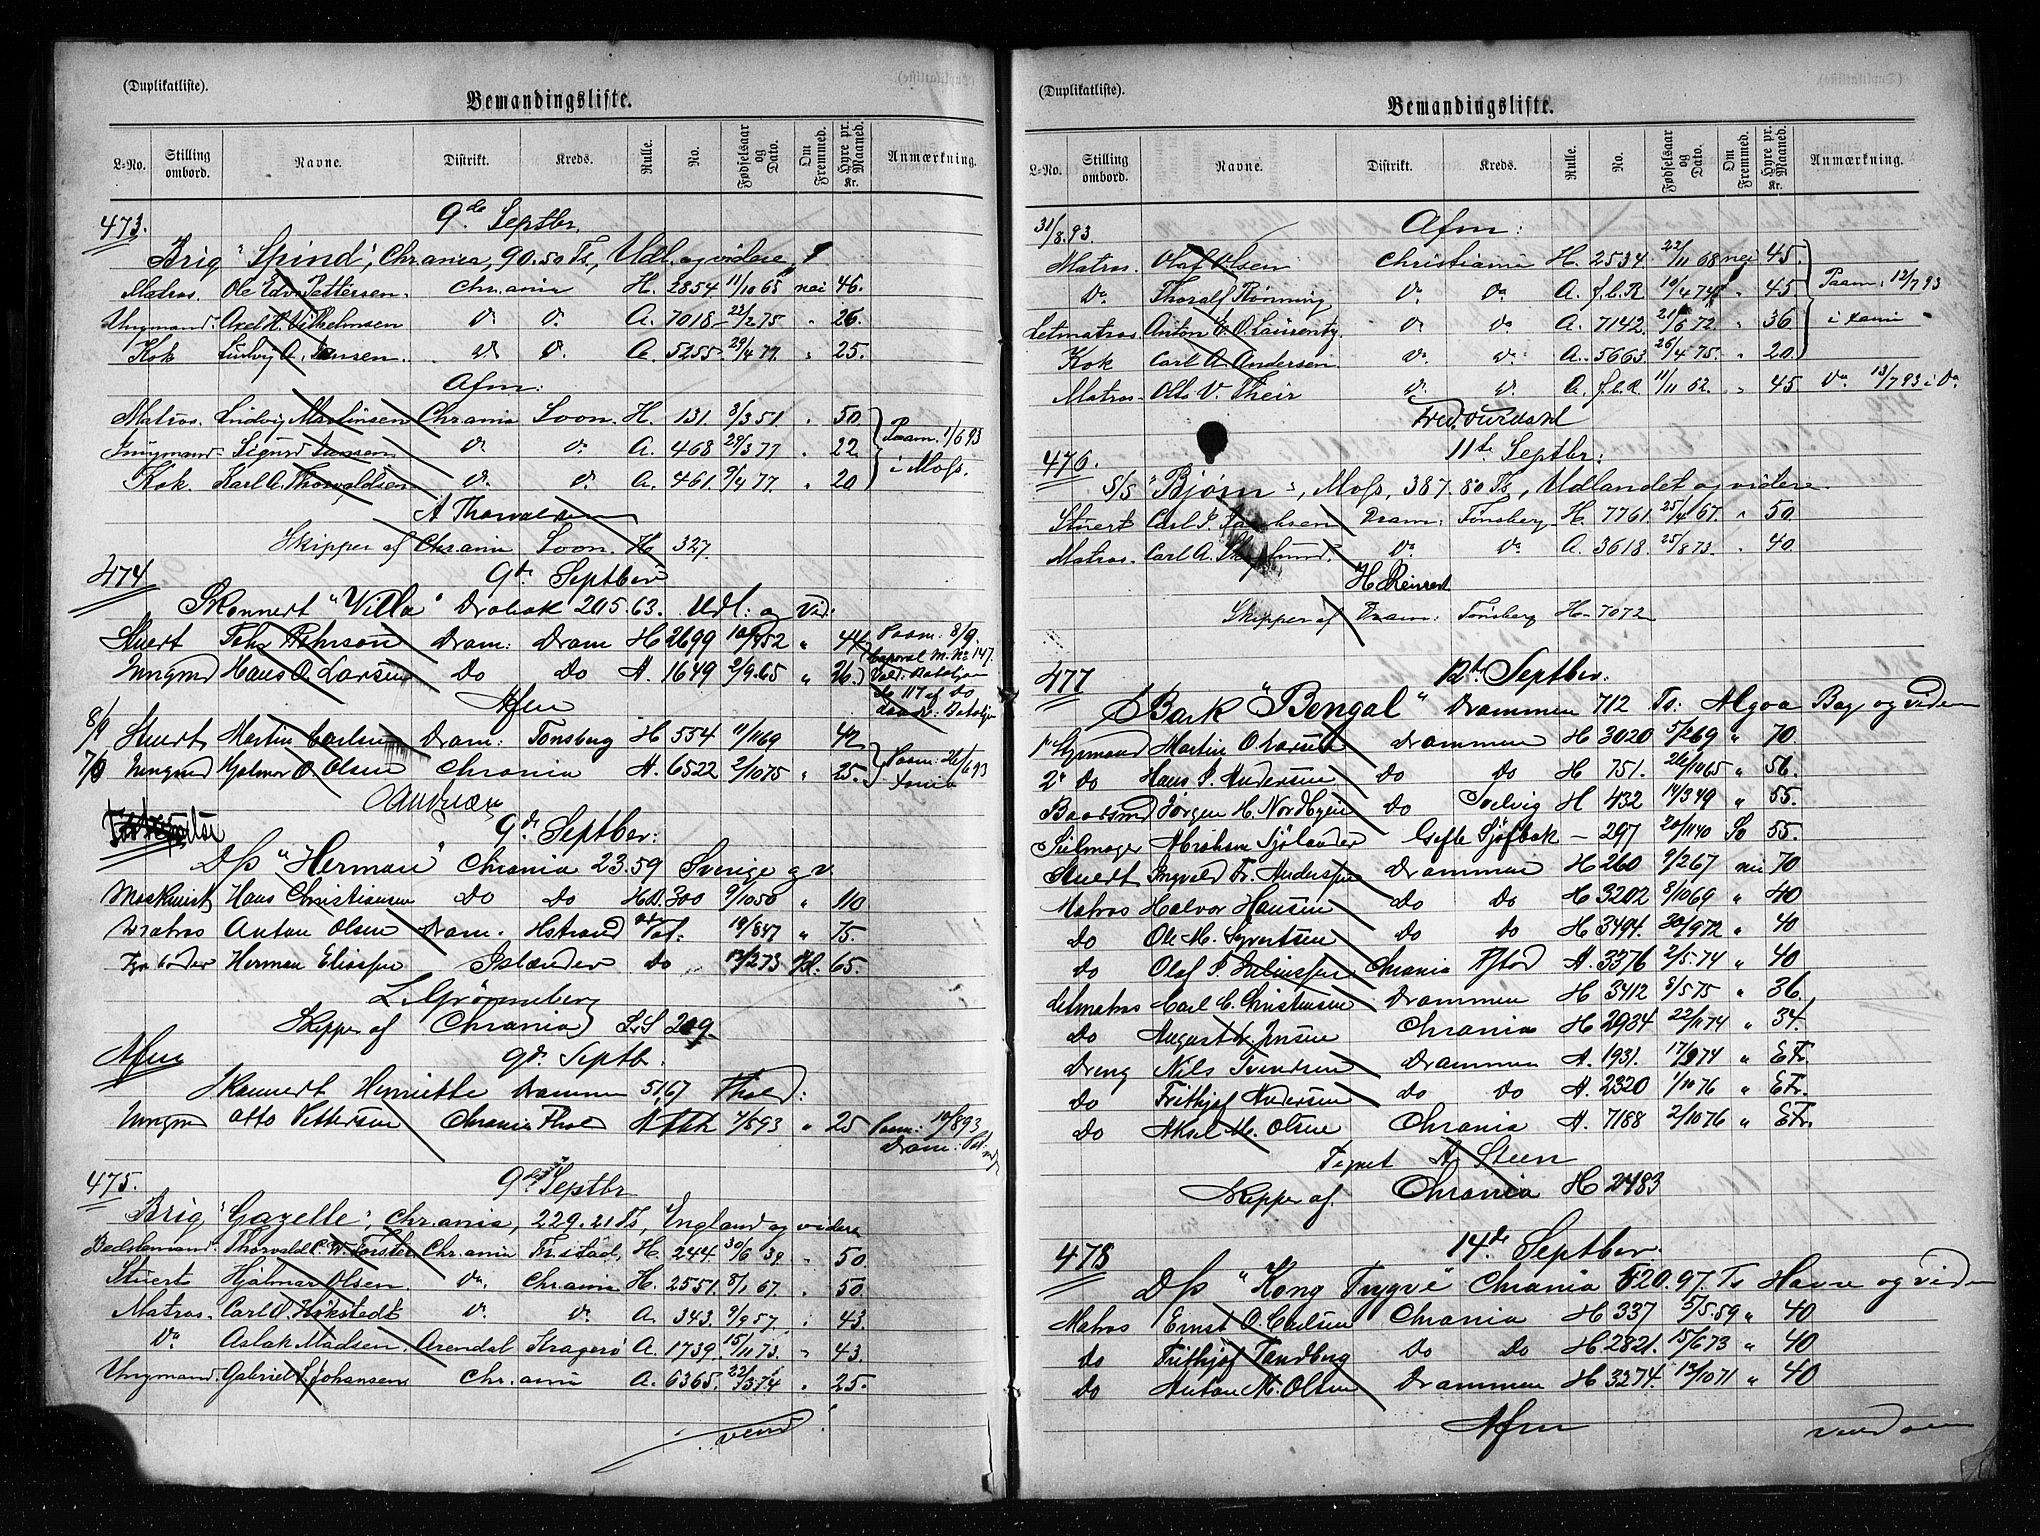 (Duplikatliste).
Bemandingsliste.
L-No. Stilling ombord. Navne. Distrikt. Kreds. Rulle. No. Fødselsaar og Dato. Om Fremmed. Hyre pr. Maaned. Kr. Anmærkning.
473. 9de Septbr.
Brig "Spind", Chrania, 90.50 Ts, Udl. og videre
Matros. Ole Edv. Pettersen. Chrania H. 2854 11/10 65 nei 46.
Ungmand. Axel H. Vilhelmsen do do. A. 7018 22/2 75 " 26.
Kok Ludvig A. Jensen. do do. A. 5255 29/4 77. " 25.
Afm:
Matros. Ludvig Martinsen Chrania Soon. H. 131. 8/3 51. " 50
Jungmand Sigurd Jansen do do. A. 468 29/3 77 " 22 Paam. 1/6 93
Kok. Karl A. Thorvaldsen do. do. A. 461. 9/4 77. " 20 i Moss.
A Thorvaldsen
Skipper af Chrania Soon. H 327.
474 9de Septber
Skonnert "Villa" Drobak 205.63. Udl: og Vid:
Stuert Dram: Dram H 2699 " 44 Paam: 8/9.
Ungmd Hans O. Larsen Do Do A. 1649 2/9.65 " 26.
Afm
8/9 Stuert Martin Carlsen Dram: Tonsberg H 554 11/11 69 42
7/9 Ungmd Hjalmar O. Olsen Chrania A. 6522 2/10 75 " 25. Paam: 26/6 93
9de Septber:
D/s "Herman" Chrania 23.59 Sverige og v.
Maskinist Hans Christiansen Do Do 300 9/10 50 " 110
Matros Anton Olsen Dram. Hstrand 18/8 47 " 75.
Fyrböder Herman Eliassen Islænder Do 12/2 73 65.
L. Grönneberg
Skipper af Chrania S.S 209.
Afm 9de Septb.
Skonnert Henriette Drammen 51,67 Thold:
Ungmd Otto Pettersen Chrania Thol A " 25 Paam: 10/8 93
475. 9de Septbr
Brig "Gazelle", Chrania, 229.21 Ts, England og videre
Bedstemand. Chrania Frstad, H. 244. 30/6 39. " 50
Stuert Hjalmar Olsen do. Chrania H. 2551. 8/1 67. " 50
Matros. Carl A. Høkstedt do. do. A. 343. 9/9 57. 43.
do Aslak Madsen. Arendal Kragerø A. 1739. 15/11 73. " 43.
Ungmand. Gabriel L. Johansen Chrania A. 6365. 22/3 74 " 25.
vend!
(Duplikatliste).
Bemandingsliste.
L-No. Stilling ombord. Navne. Distrikt. Kreds. Rulle. No. Fødselsaar og Dato. Om Fremmed. Hyre pr. Maaned. Kr. Anmærkning.
31/8.93. Afm:
Matros. Olaf Olsen Christiania H. 2534. 22/11 68 nei 45.
do Thoralf Rønning do. do A. f.l.R 10/4 74 " 45. Paam: 12/7 93
Letmatros Anton do do A. 7142. 21/6 72 " 36
Kok Carl A. Andersen do. do. A. 5663. 26/4 75. " 20.
Matros. Otto V. Their do. do. A. f.l.R. 11/11 62. " 45 do 13/7 93 i do.
476. 11te Septbr:
S/S "Bjørn", Moss, 387.80 Ts, Udlandet og videre.
Stuert Carl P. Jacobsen Dram: Tønsberg H. 7761. 25/4 67. " 50
Matros. Carl A. do. do. A. 3618. 25/8 73. " 40.
Skipper af Dram: Tønsberg H. 7072
477 12te Septber.
Bark "Bengal" Drammen 712 Ts: Algoa Bay og viden
1e Styrmand Martin O Larsen Drammen H 3020 5/2 69 " 70.
2e do Hans P. Andersen Do Do H 751. 26/10 65 " 56.
Baadsmd Jørgen H. Nordbyen Do Svelvig H 432 14/3 49 " 55.
Seilmager Abraham Sjølander Gefle Sjöfbok — 297 20/11 40 So 55.
Stuert Ingvald Fr. Andersen Drammen H 260 9/2 67 nei 70
Matros Halvor Hansen Do Do H 3202 8/10 69 " 40
Do Ole M. Syvertsen Do Do H 3494. 30/9 72 " 40
Do Olaf P. Juliussen Chrania Fstad A. 3376 2/5.74 " 40
Letmatros Carl C. Christensen Drammen H 3412 8/5 75 " 36,
Do August L. Jensen Chrania H 2934 22/11 74 " 34.
Dreng Nils Svendsen Drammen A. 1931. 17/9 74 " E Fr.
Do Frithjof Andersen Do Do A. 2320 1/10 76 " E Fr.
Do Aksel M. Olsen Chrania A. 7188 2/10 76 " E Fr.
Tegnet A Steen
Skipper af. Chrania H 2483
478 14de Septber.
D/s "Kong Trygve" Chrania 520.97. Ts Havre og viden
Matros Ernst O. Carlsen Chrania H 337 5/5.59 " 40
Do Frithjof Tandberg Do Do H 2821. 15/6 73 " 40
Do Anton M. Olsen Drammen H 3274. 13/10 71 " 40
Afm